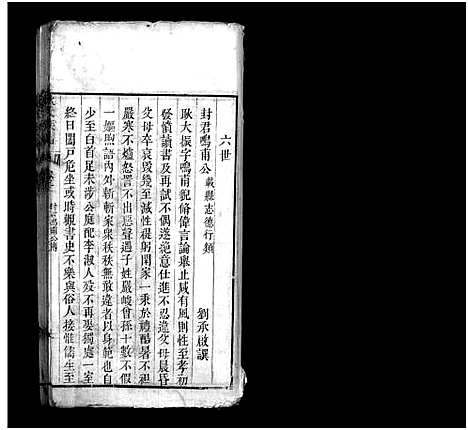 六世
封君鳴甫公載縣志德行類
劉承啟譔
耿大振字鳴甫貌脩偉言論舉止咸有風則性至孝初
發憤讀書及再試不偶遂絶意仕進不忍違父母晨昏
父母卒哀毀幾至滅性禔躬閑家一秉於禮酷暑不裎
嚴寒不爐怒詈不出惡聲遇子姓嚴峻曾孫十數不假
一嫗煦語内外斬斬家衆秩秩無敢違者以身範也自
少至白首足未涉公庭配李淑人歿不再娶獨處一室
終日闔戶危坐或時觀書史不樂與俗人接惟儒生至
封君鳴甫公傳